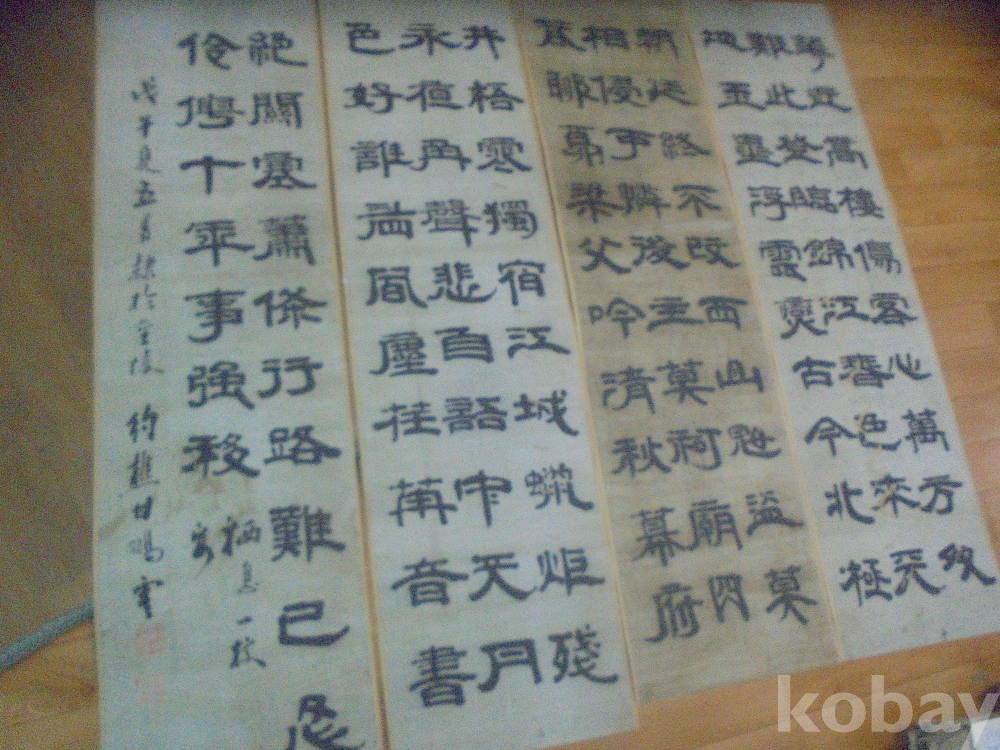 華近高樓傷客心萬方多
難此登臨錦江春色來天
地玉壘浮雲變古今北極
朝廷終不改西山寇盜莫
相侵可憐後主還祠廟日
暮聊為梁父吟清秋幕府
井梧寒獨宿江城蠟炬殘
永夜角聲悲自語中天月
色好誰看風塵荏苒音書
絕關塞蕭條行路難已忍
伶俜十年事強移
栖息一枝
安
戊午夏五月隸於
kobay